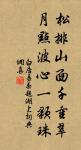 松排山面千重翠
月點波心一顆珠
白居易春題湖上詞典
網真